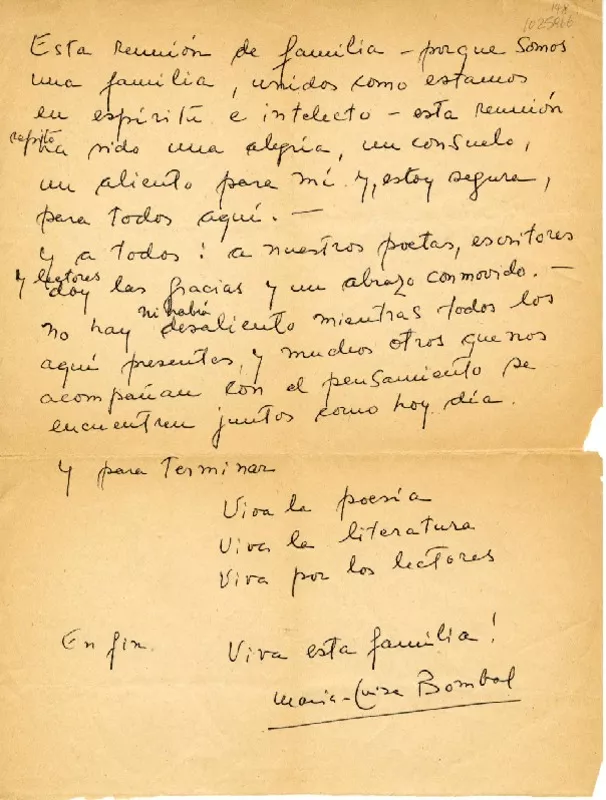 198
1025866
Esta reunión de familia – porque somos
una familia, unidos como estamos
en espíritu e intelecto – esta reunión
repito
ha sido una alegría, un consuelo,
un aliento para mí y, estoy segura,
para todos aquí. —
Y a todos: a nuestros poetas, escritores
y lectores
doy las gracias y un abrazo conmovido. —
ni habrá
No hay desaliento mientras todos los
aquí presentes, y muchos otros que nos
acompañan con el pensamiento se
encuentren juntos como hoy día.
Y para terminar
Viva la poesía
Viva la literatura
Viva por los lectores
En fin. Viva esta familia!
María-Luisa Bombal